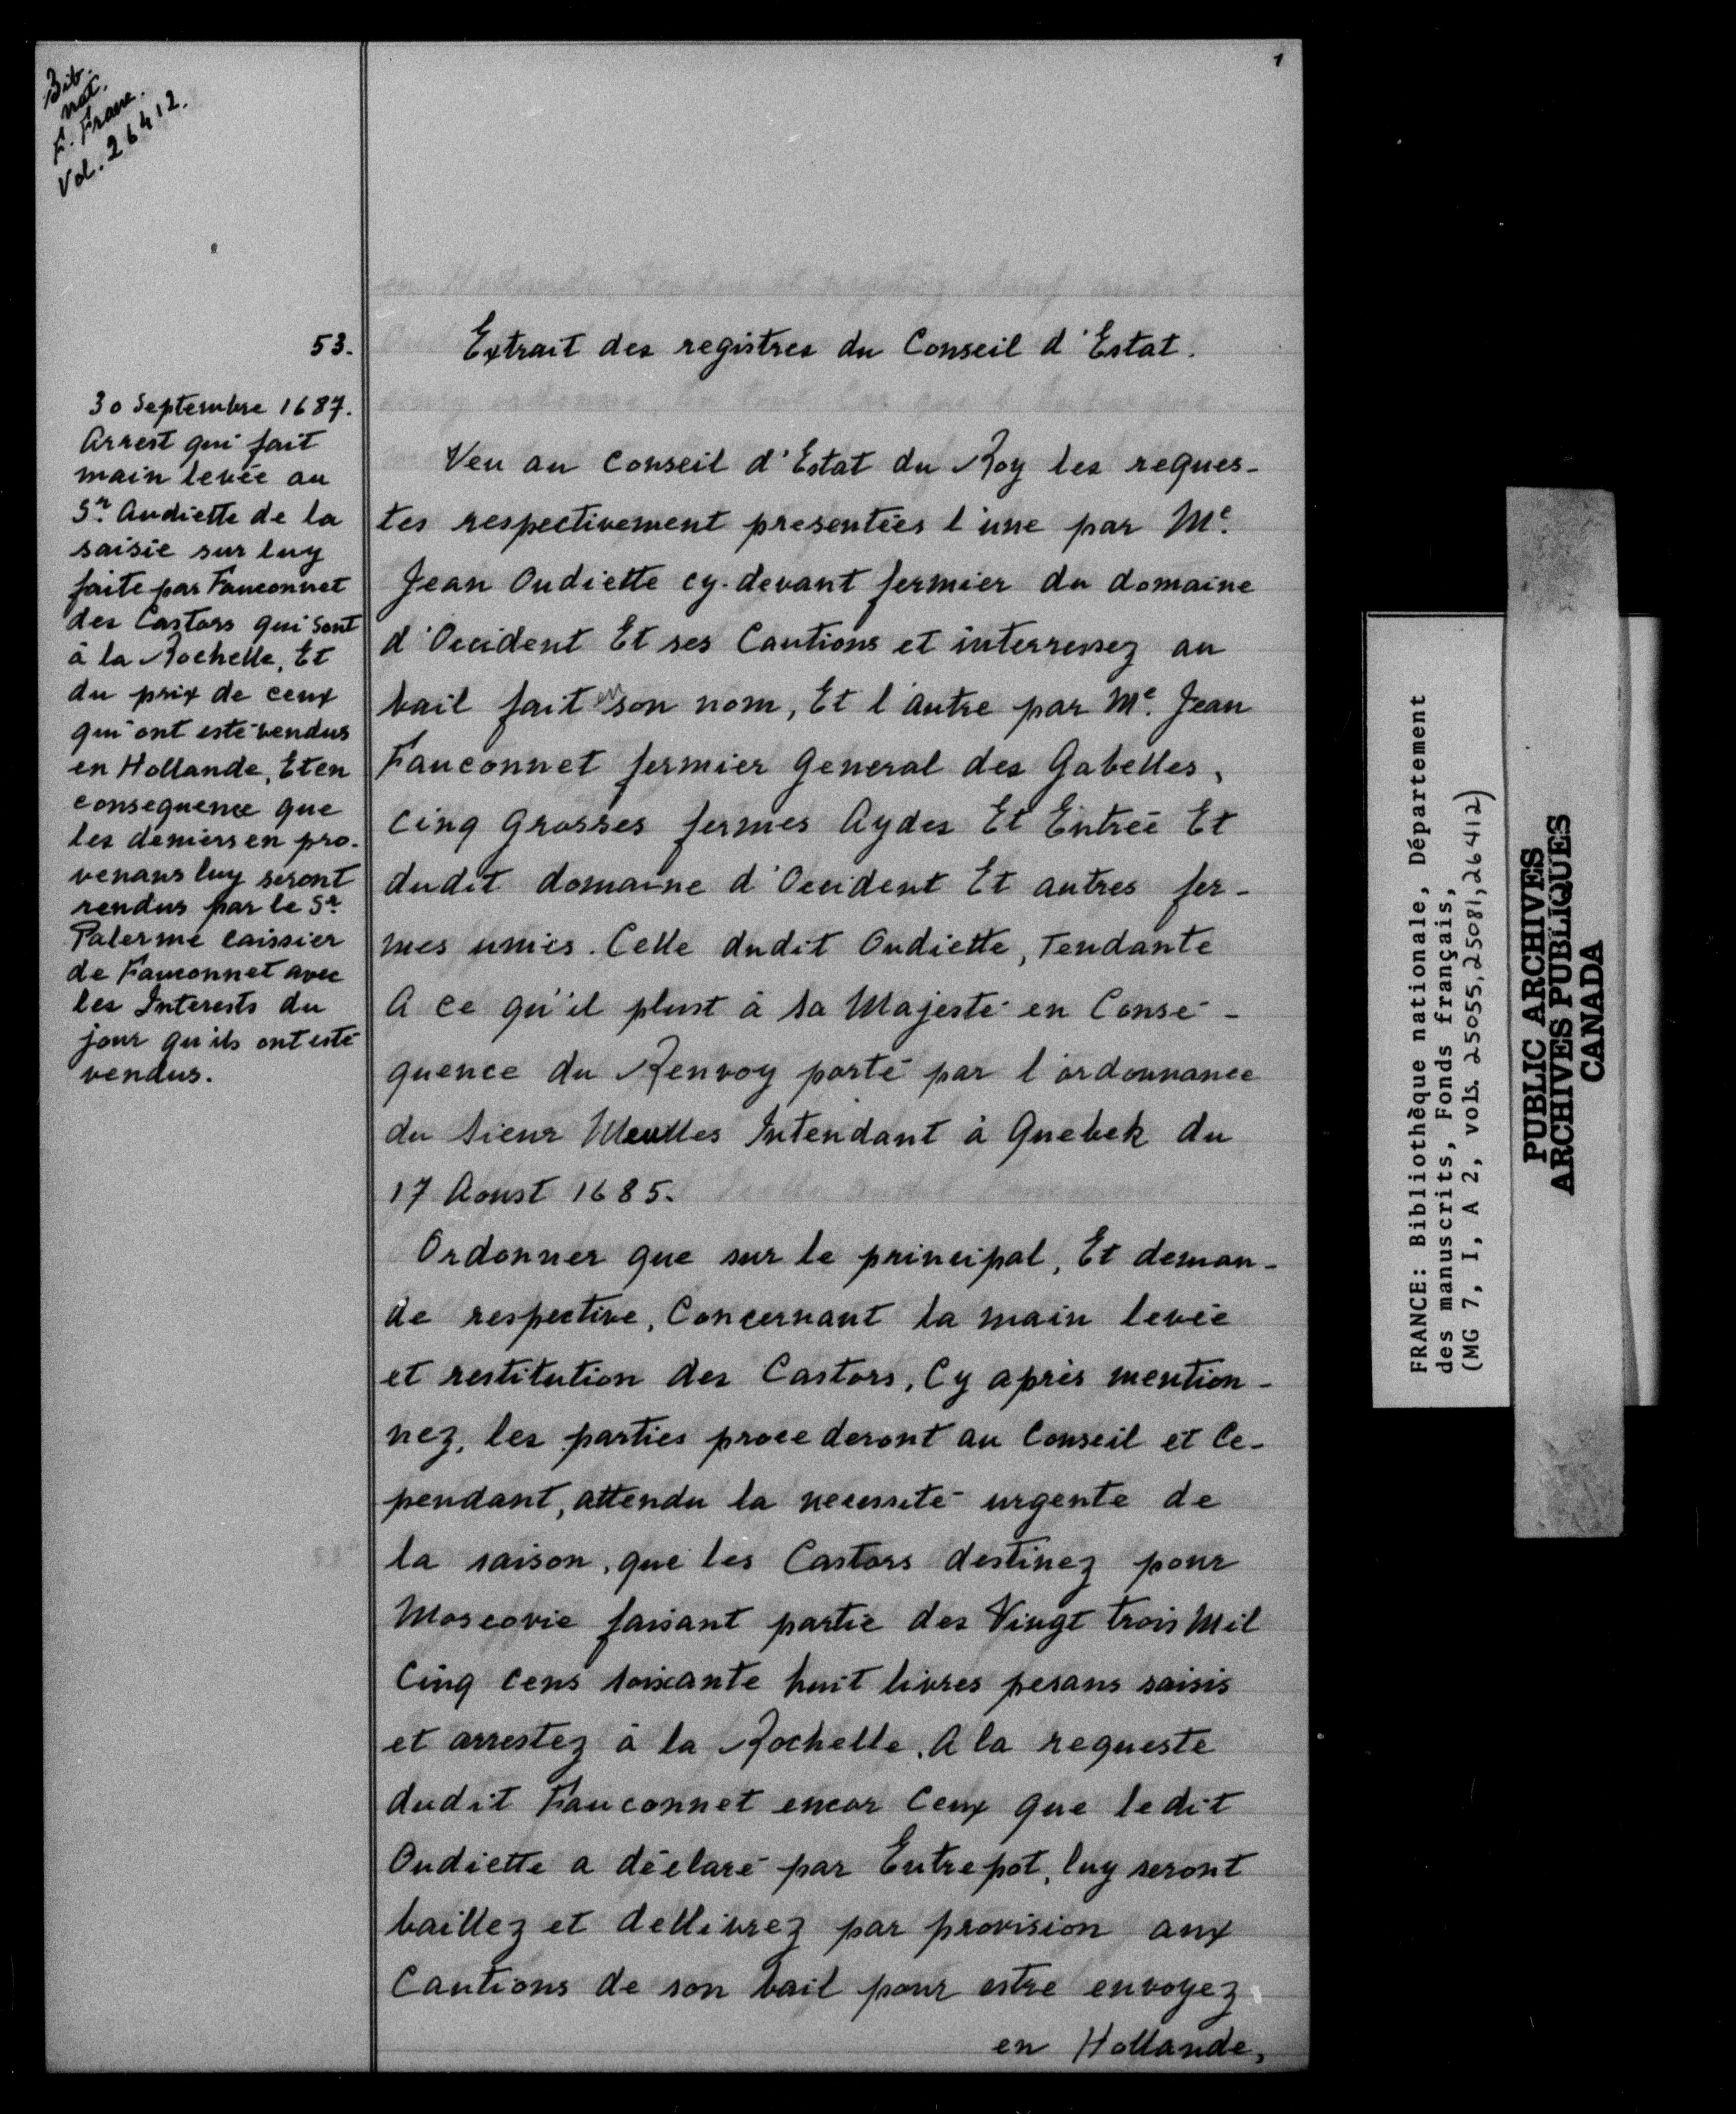 Bib.
nat.
F. Franc.
Vol. 26412.
1
53.
30 Septembre 1687.
Arrest qui fait
main levée au
Sr. Audiette de la
saisie sur luy
faite par Fauconnet
des Castors qui sont
à la Rochelle, Et
du prix de ceux
qui ont esté vendus
en Hollande, Et en
consequence que
les deniers en pro-
venans luy seront
rendus par le Sr.
Palerme caissier
de Fauconnet avec
les Interests du
jour qu'ils ont esté
vendus.
Extrait des registres du Conseil d'Estat.
Veu au Conseil d'Estat du Roy les reques-
tes respectivement presentées l'une par Me.
Jean Oudiette cy-devant fermier du domaine
d'Occident Et ses Cautions et interressez au
bail fait en son nom, Et l'autre par Me. Jean
Fauconnet fermier General des Gabelles,
Cinq Grosses fermes Aydes Et Entrée Et
dudit domaine d'Occident Et autres fer-
mes unies. Celle dudit Oudiette, Tendante
A ce qu'il plust à sa Majesté en Conse-
quence du Renvoy porté par l'ordonnance
du sieur Meulles Intendant à Quebek du
17 Aoust 1685.
Ordonner que sur le principal, Et deman-
de respective, Concernant la main levée
et restitution des Castors, Cy après mention-
nez, les parties procederont au Conseil et Ce-
pendant, attendu la necessité urgente de
la saison, que les Castors destinez pour
Moscovie faisant partie des Vingt trois Mil
Cinq cens soixante huit livres pesans saisis
et arrestez à la Rochelle, A la requeste
dudit Fauconnet encor Ceux que ledit
Oudiette a déclaré par Entrepot, luy seront
baillez et dellivrez par provision aux
Cautions de son bail pour estre envoyez
en Hollande,
FRANCE: Bibliothèque nationale, Département
des manuscrits, Fonds français,
(MG 7, I, A 2, vols. 25055, 25081, 26412)
PUBLIC ARCHIVES
ARCHIVES PUBLIQUES
CANADA